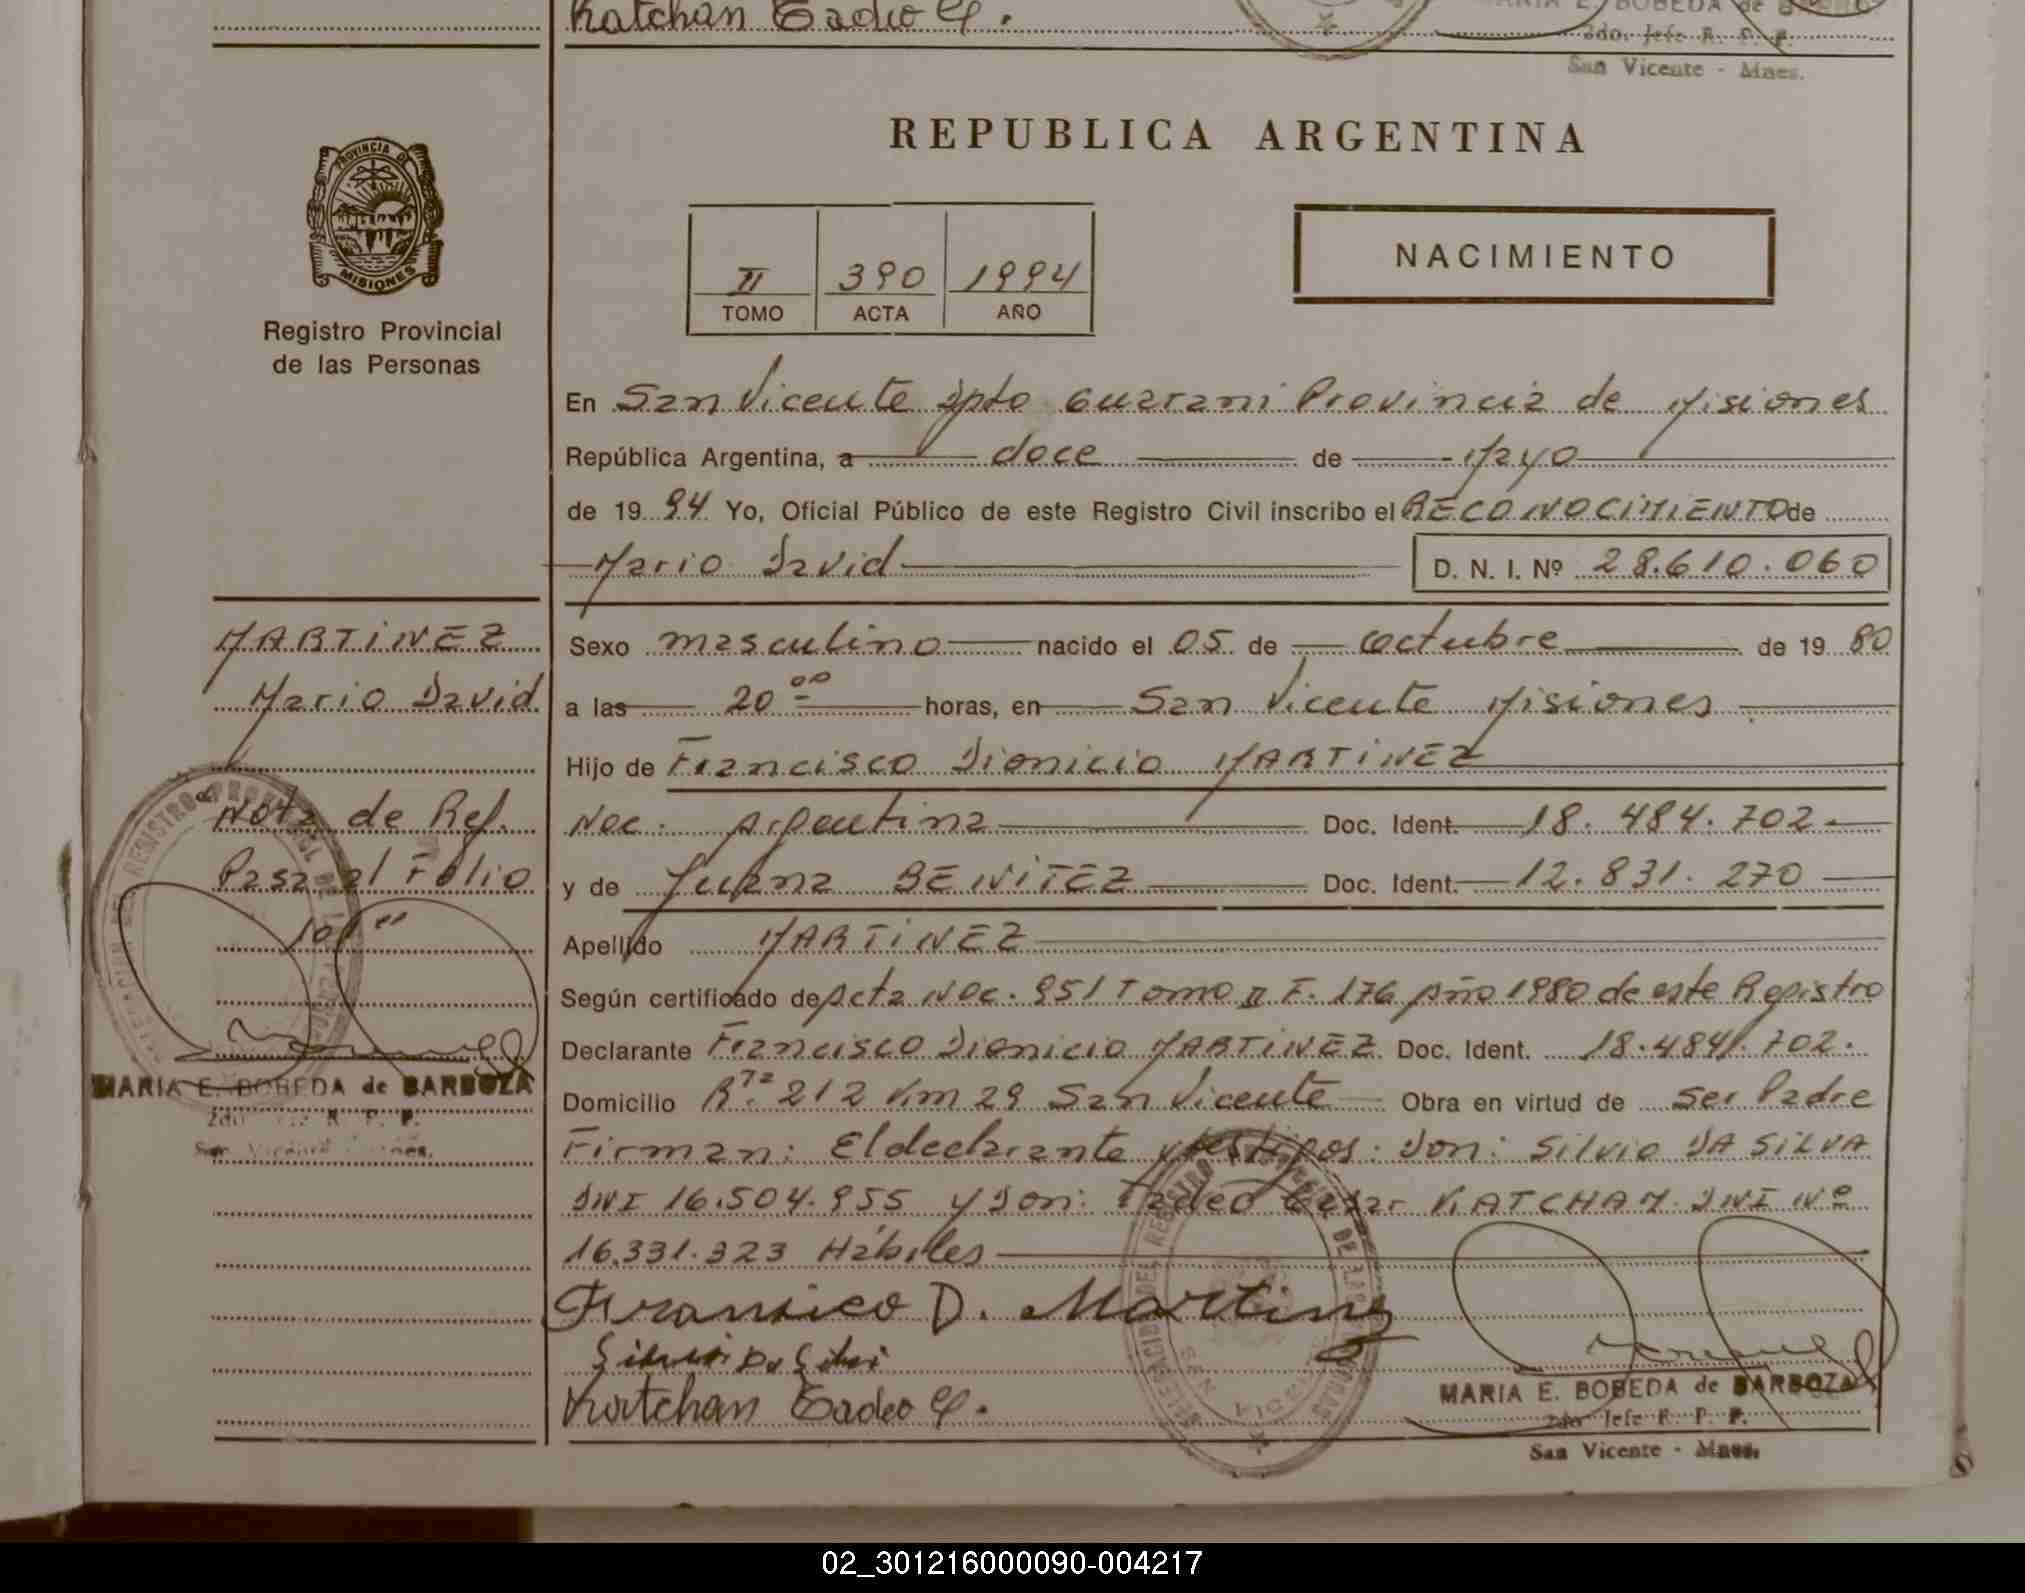 Katchan Tadeo C.
MARIA E. BOBEDA de
2do. Jefe R. P. P.
San Vicente - Mnes.
PROVINCIA DE
MISIONES
Registro Provincial
de las Personas
REPUBLICA ARGENTINA
II 390 1994
TOMO ACTA AÑO
NACIMIENTO
En San Vicente Dpto Guarani Provincia de Misiones
República Argentina, a doce de Mayo
de 1994 Yo, Oficial Público de este Registro Civil inscribo el RECONOCIMIENTO de
Mario David D. N. I. Nº 28.610.060
MARTINEZ
Mario David
Sexo masculino nacido el 05 de octubre de 1980
a las 20 00 horas, en San Vicente Misiones
Hijo de Francisco Dionicio MARTINEZ
Nac. Argentina Doc. Ident. 18.484.702.
y de Juana BENITEZ Doc. Ident. 12.831.270
Apellido MARTINEZ
Según certificado de Acta Nac. 951 Tomo II F. 176 Año 1980 de este Registro
Declarante Francisco Dionicio MARTINEZ Doc. Ident. 18.484.702.
Domicilio Rta. 212 Km 29 San Vicente Obra en virtud de ser Padre
Firman: El declarante y testigos: Don: Silvio DA SILVA
DNI 16.504.955 y Don: Tadeo Cesar KATCHAN. DNI Nº
16.331.323 Hábiles
Nota de Ref.
Pasa al Folio
MARIA E. BOBEDA de BARBOZA
2do R. P. P.
Fransico D. Martinez
Katchan Tadeo C.
MARIA E. BOBEDA de BARBOZA
2do Jefe R. P. P.
San Vicente - Mnes.
02_301216000090-004217